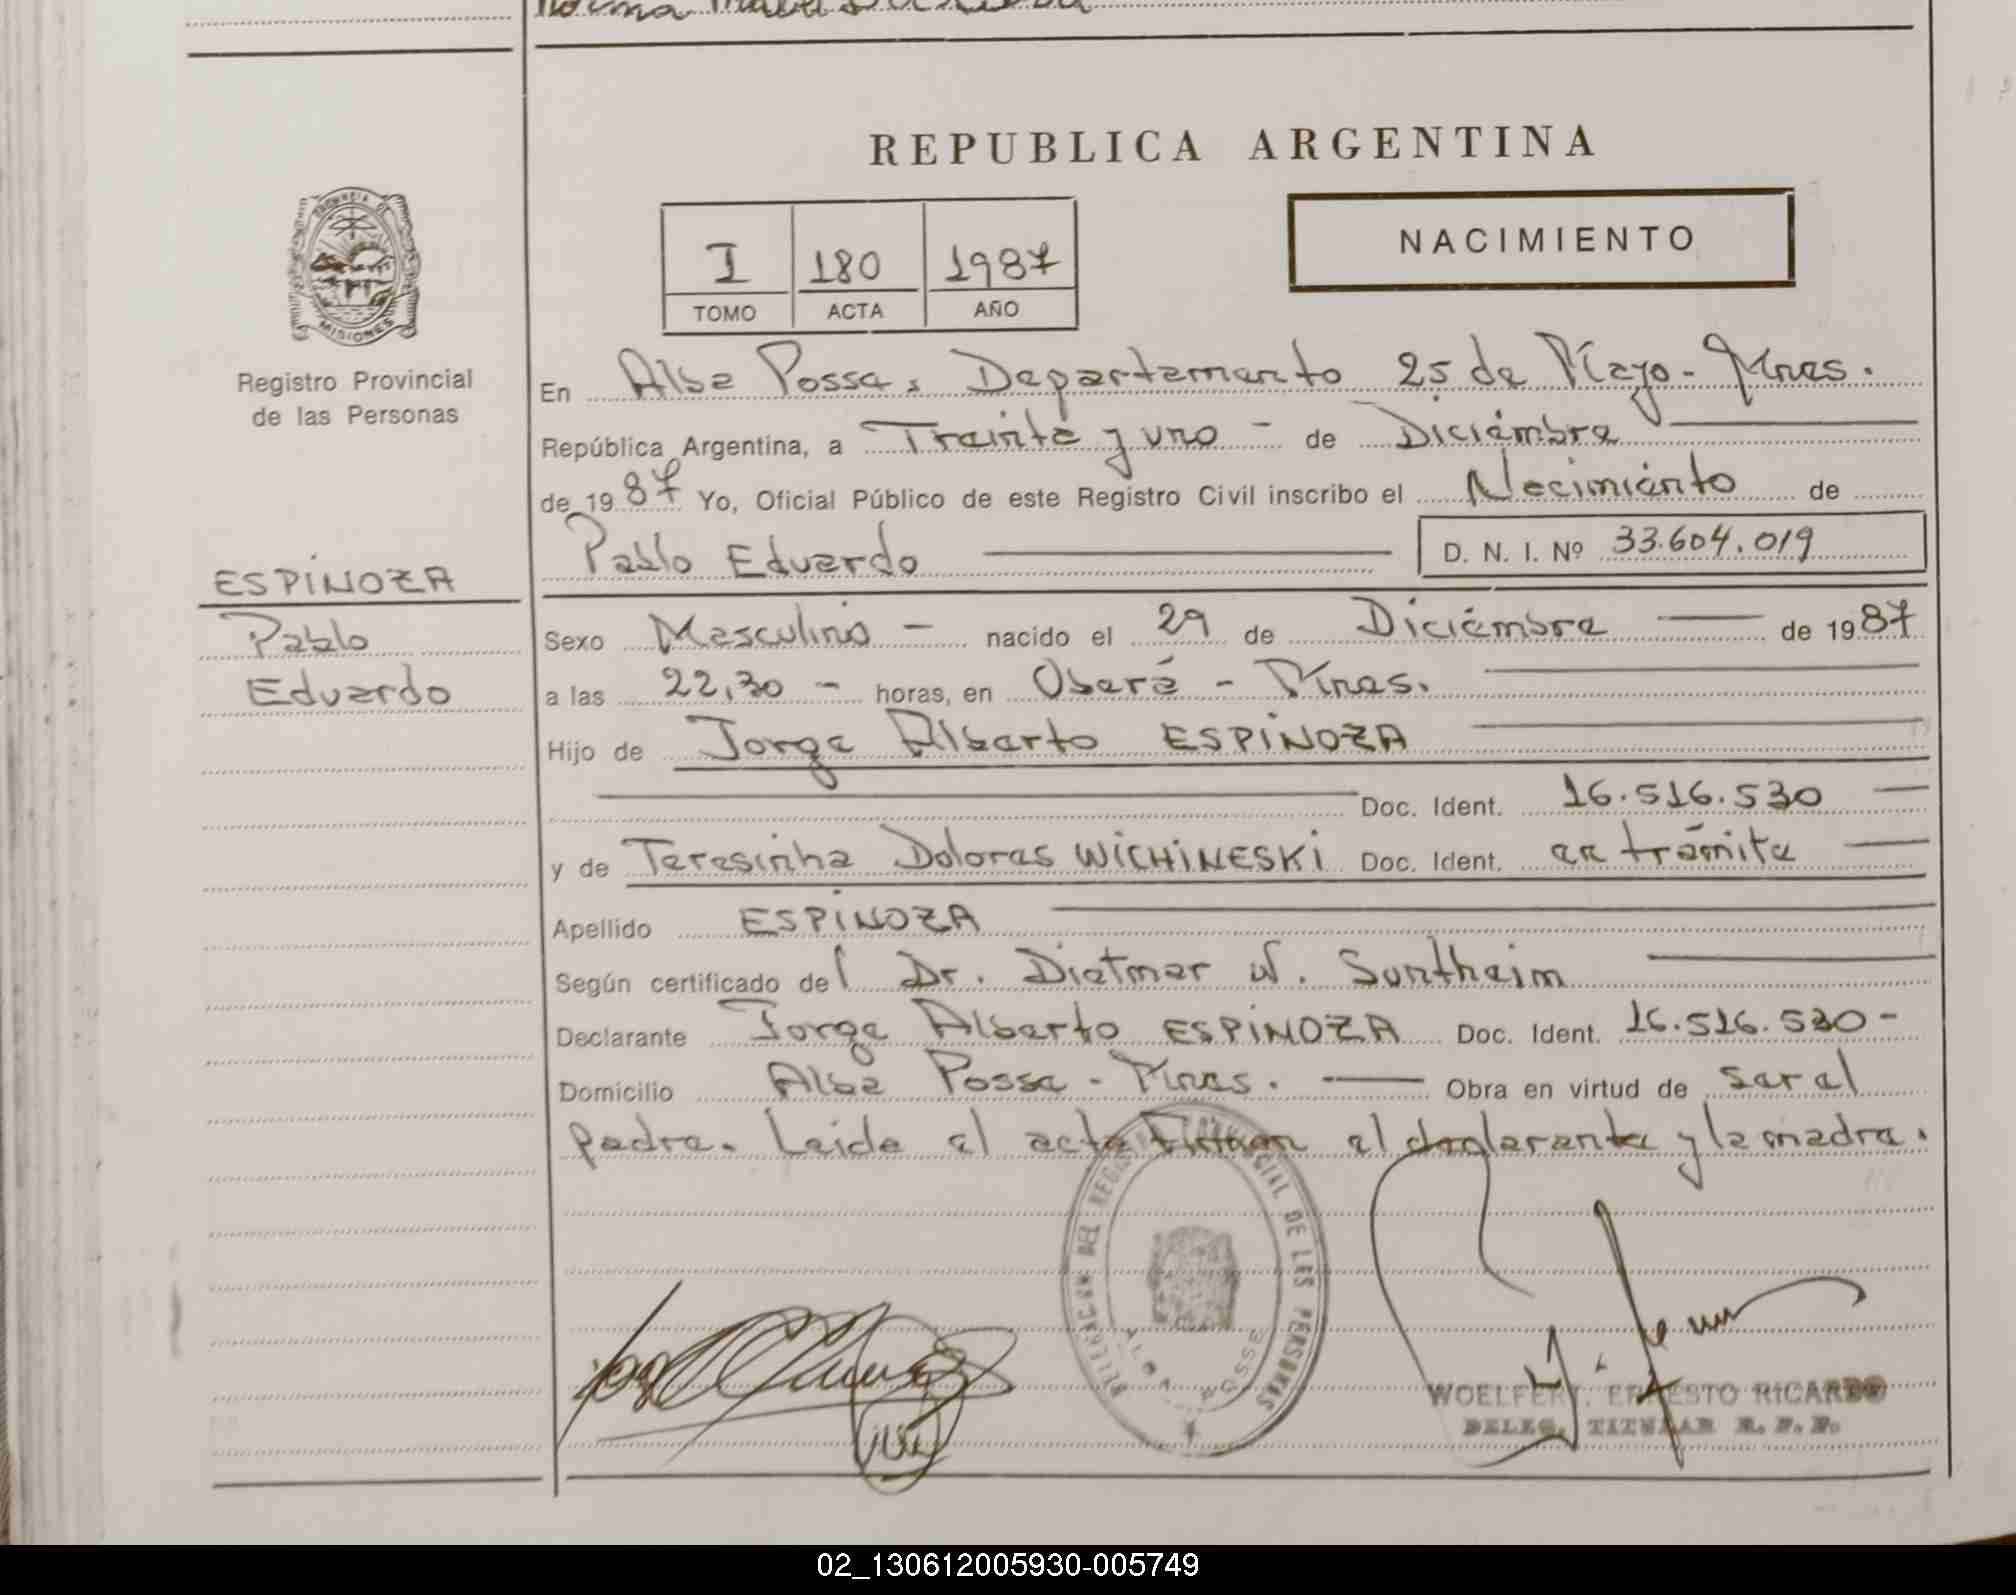 REPUBLICA ARGENTINA
PROVINCIA DE
MISIONES
Registro Provincial
de las Personas
I 180 1987
TOMO ACTA AÑO
NACIMIENTO
En Alba Posse, Departamento 25 de Mayo - Mnes.
República Argentina, a Treinta y uno - de Diciembre
de 1987 Yo, Oficial Público de este Registro Civil inscribo el Nacimiento de
Pablo Eduardo D. N. I. Nº 33.604.019
ESPINOZA
Pablo
Eduardo
Sexo Masculino - nacido el 29 de Diciembre de 1987
a las 22,30 - horas, en Oberá - Mnes.
Hijo de Jorge Alberto ESPINOZA
Doc. Ident. 16.516.530
y de Teresinha Dolores WICHINESKI Doc. Ident. en trámite
Apellido ESPINOZA
Según certificado del Dr. Dietmar W. Suntheim
Declarante Jorge Alberto ESPINOZA Doc. Ident. 16.516.530 -
Domicilio Alba Posse - Mnes. Obra en virtud de ser el
padre. Leida el acta Firman el declarante y la madre.
DELEGACION DEL REGISTRO PROVINCIAL DE LES PERSONAS
ALBA POSSE
WOELFERT, ERNESTO RICARDO
DELEG. TITULAR R. P. P.
02_130612005930-005749